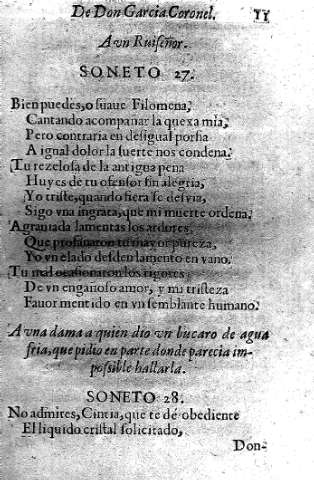 De Don Garcia Coronel. 11
A vn Ruiſeñor.
SONETO 27.
Bien puedes, o ſuaue Filomena,
Cantando acompañar la quexa mia,
Pero contraria en deſigual porfia
A igual dolor la ſuerte nos condena.
Tu rezeloſa de la antigua pena
Huyes de tu ofenſor ſin alegria,
Yo triſte, quando fiera ſe deſvia,
Sigo vna ingrata, que mi muerte ordena.
Agrauiada lamentas los ardores,
Que profanaron tu mayor pureza,
Yo vn elado deſden lamento en vano.
Tu mal ocaſionaron los rigores
De vn engañoſo amor, y mi triſteza
Fauor mentido en vn ſemblante humano.
A vna dama a quien dio vn bucaro de agua
fria, que pidio en parte donde parecia im-
poſsible hallarla.
SONETO 28.
No admires, Cintia, que te dè obediente
El liquido criſtal ſolicitado,
Don-